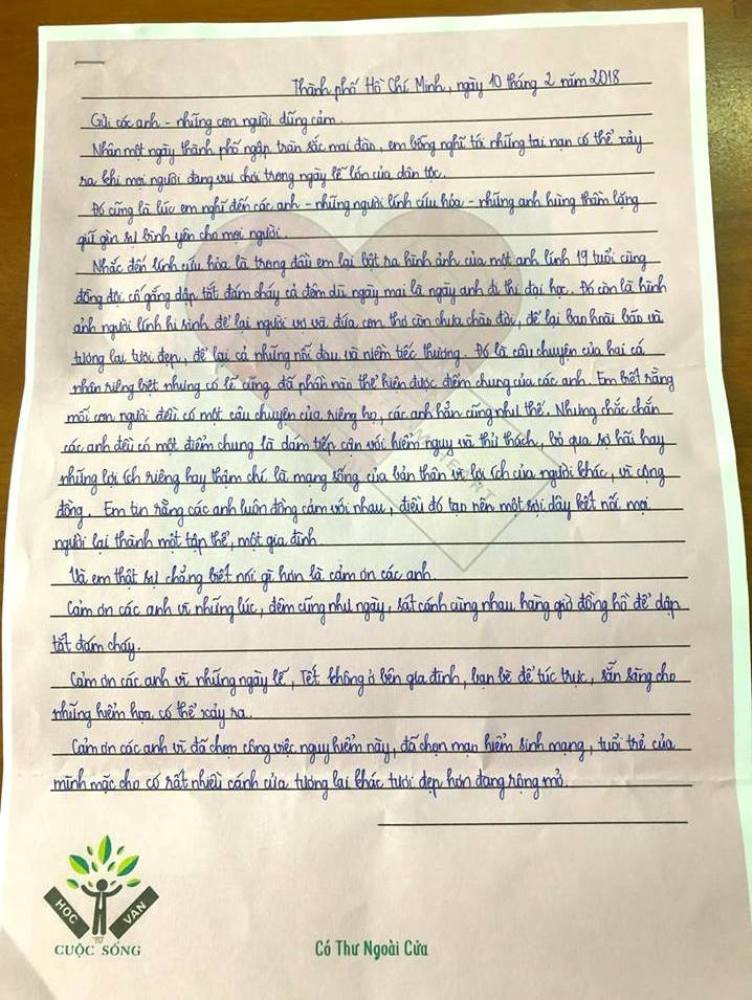 Thành phố Hồ Chí Minh, ngày 10 tháng 2 năm 2018
Gửi các anh - những con người dũng cảm.
Nhân một ngày thành phố ngập tràn sắc mai đào, em bỗng nghĩ tới những tai nạn có thể xảy
ra khi mọi người đang vui chơi trong ngày lễ lớn của dân tộc.
Đó cũng là lúc em nghĩ đến các anh - những người lính cứu hỏa - những anh hùng thầm lặng
giữ gìn sự bình yên cho mọi người.
Nhắc đến lính cứu hỏa là trong đầu em lại bật ra hình ảnh của một anh lính 19 tuổi cùng
đồng đội, cố gắng dập tắt đám cháy cả đêm dù ngày mai là ngày anh đi thi đại học. Đó còn là hình
ảnh người lính hi sinh để lại người vợ và đứa con thơ còn chưa chào đời, để lại bao hoài bão và
tương lai tươi đẹp, để lại cả những nỗi đau và niềm tiếc thương. Đó là câu chuyện của hai cá
nhân riêng biệt nhưng có lẽ cũng đã phần nào thể hiện được điểm chung của các anh. Em biết rằng
mỗi con người đều có một câu chuyện của riêng họ, các anh hẳn cũng như thế. Nhưng chắc chắn
các anh đều có một điểm chung là dám tiếp cận với hiểm nguy và thử thách, bỏ qua sợ hãi hay
những lợi ích riêng hay thậm chí là mạng sống của bản thân vì lợi ích của người khác, vì cộng
đồng. Em tin rằng các anh luôn đồng cảm với nhau, điều đó tạo nên một sợi dây kết nối mọi
người lại thành một tập thể, một gia đình.
Và em thật sự chẳng biết nói gì hơn là cảm ơn các anh.
Cảm ơn các anh vì những lúc, đêm cũng như ngày, sát cánh cùng nhau hàng giờ đồng hồ để dập
tắt đám cháy.
Cảm ơn các anh vì những ngày lễ, Tết không ở bên gia đình, bạn bè để túc trực, sẵn sàng cho
những hiểm họa có thể xảy ra.
Cảm ơn các anh vì đã chọn công việc nguy hiểm này, đã chọn mạo hiểm sinh mạng, tuổi trẻ của
mình mặc cho có rất nhiều cánh cửa tương lai khác tươi đẹp hơn đang rộng mở.
HỌC VẤN
CUỘC SỐNG
Có Thư Ngoài Cửa